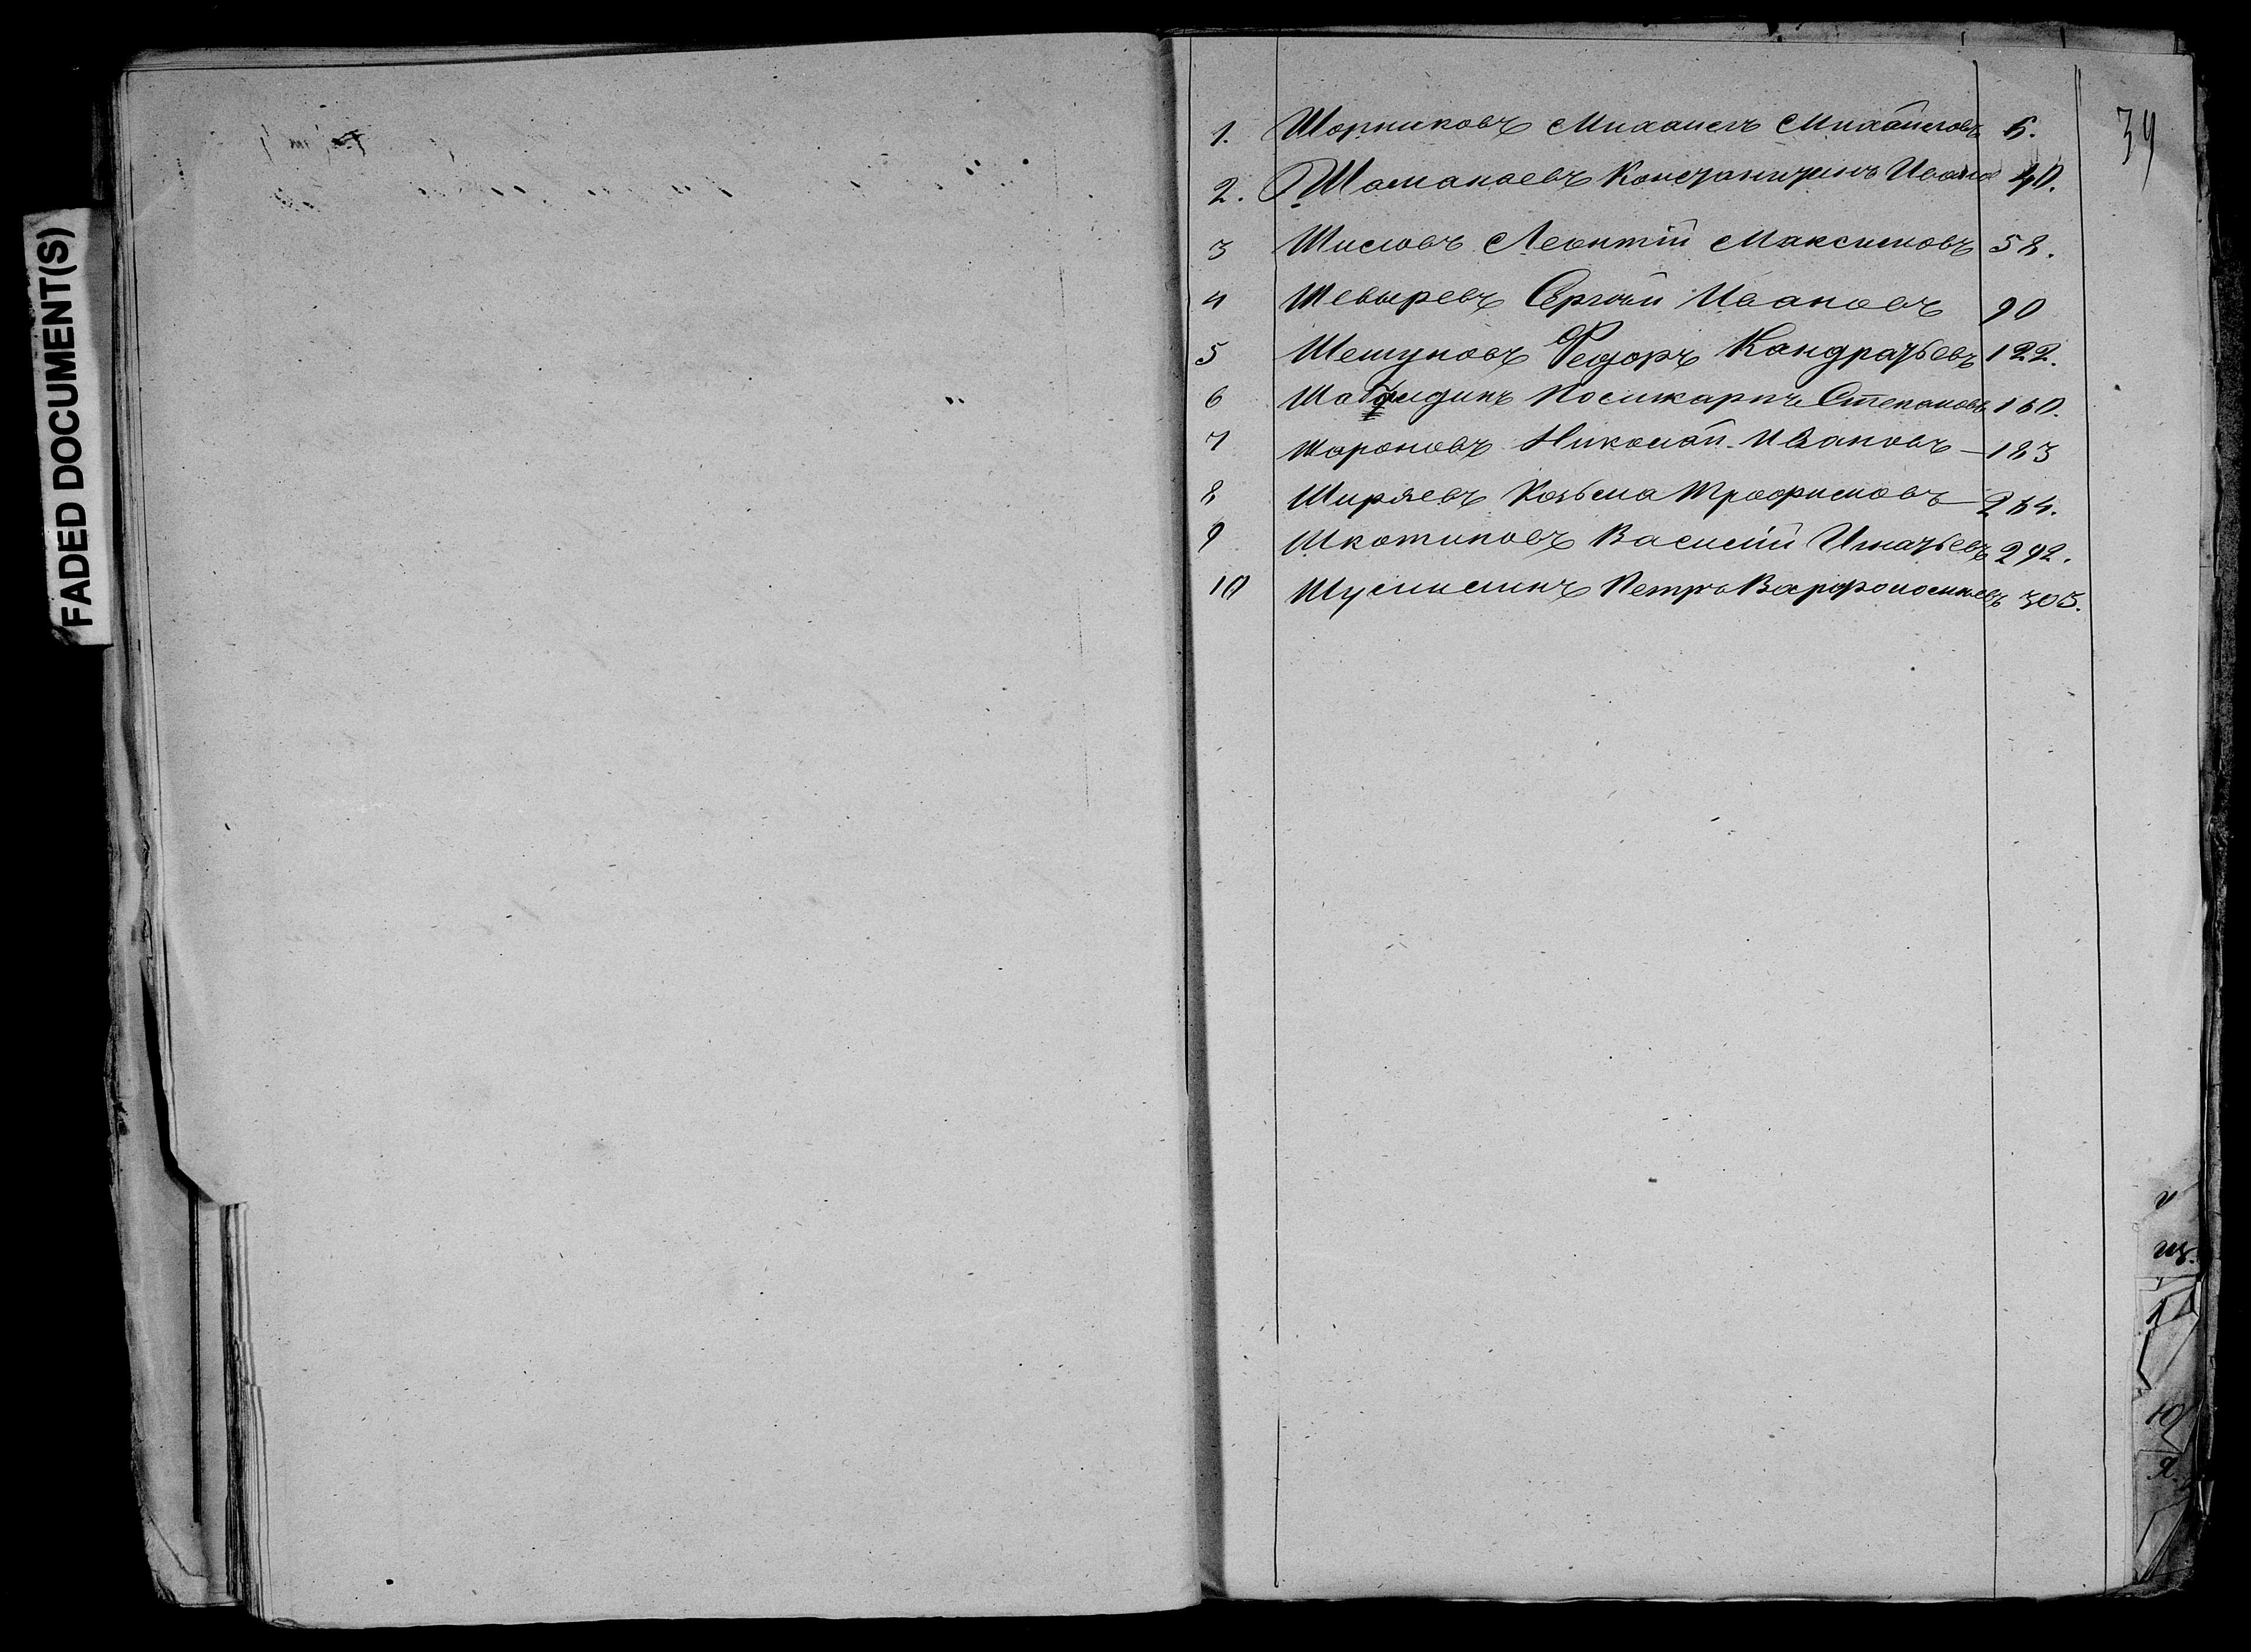 FADED DOCUMENT(S)
34
1. Шорниковъ Михаилъ Михайловъ 5.
2. Шаманаевъ Константинъ Иванов 40.
3 Шиловъ Леонтій Максимовъ 58.
4 Шевыревъ Сергѣй Ивановъ 90
5 Шешуковъ Федоръ Кандратьевъ 122.
6 Поликарпъ Степановъ 160.
7 Шароновъ Николай Ивановъ — 183
8 Ширяевъ Козьма Трофимовъ — 264.
9 Шкотиковъ Василій Игнатьевъ 292.
10 Петръ Варфоломеевъ 305.
Ю
Я.